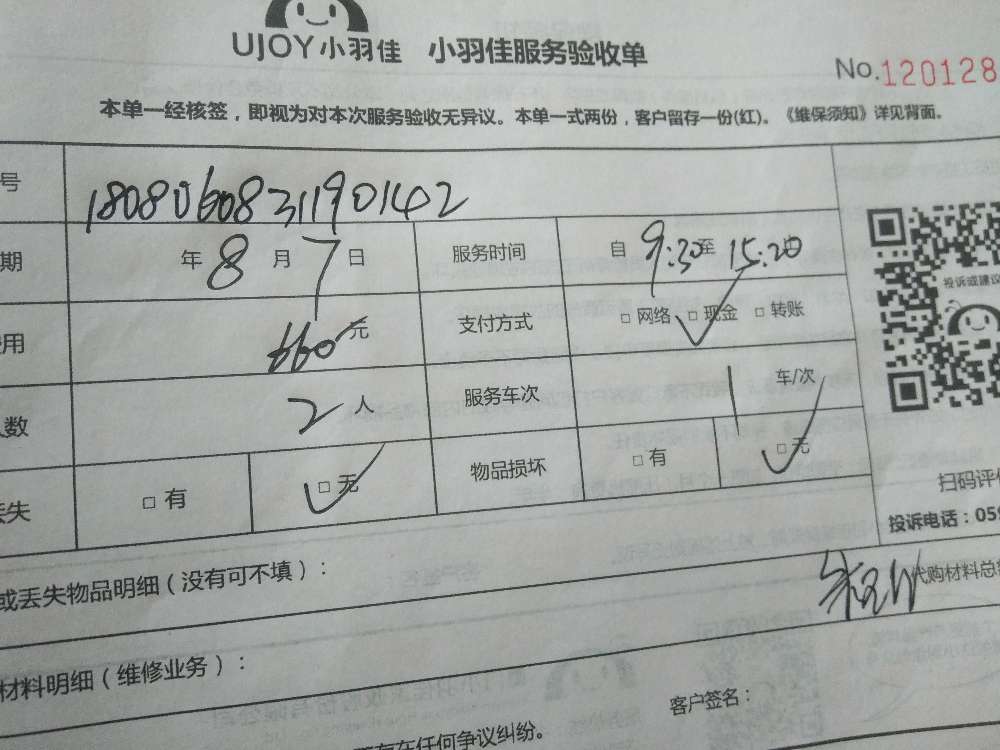 UJOY小羽佳 小羽佳服务验收单
No.120128
本单一经核签，即视为对本次服务验收无异议。本单一式两份，客户留存一份(红)。《维保须知》详见背面。
号 18080608311901402
期 年 8 月 7 日 服务时间 自 9:30 至 15:20
投诉或建议
用 660 元 支付方式 □ 网络 □ 现金 □ 转账
人数 2 人 服务车次 1 车/次
丢失 □ 有 □ 无 物品损坏 □ 有 □ 无
扫码评价
投诉电话：059
或丢失物品明细（没有可不填）：
代购材料总
材料明细（维修业务）：
客户签名：
存在任何争议纠纷。